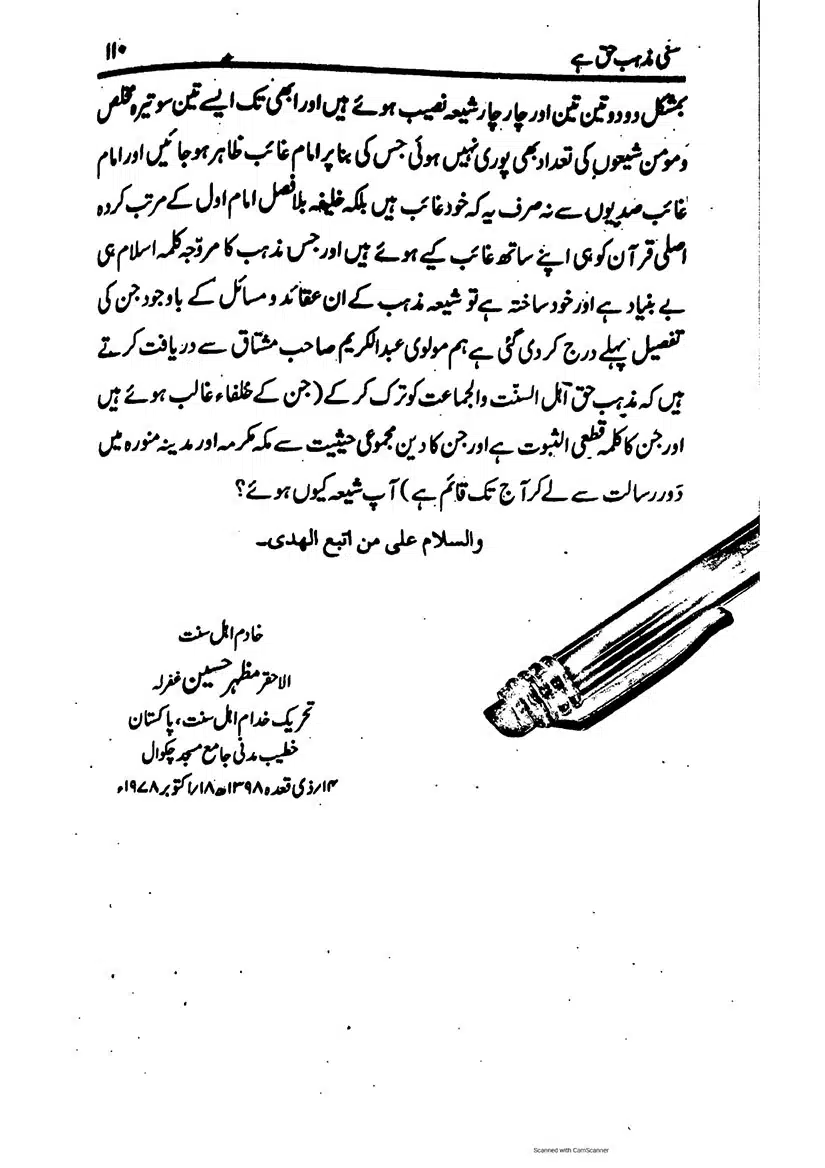 سنی مذہب حق ہے
۱۱۰
بمشکل دو دو تین تین اور چار چار شیعہ نصیب ہوئے ہیں اور ابھی تک ایسے تین سو تیرہ مخلص
و مومن شیعوں کی تعداد بھی پوری نہیں ہوئی جس کی بنا پر امام غائب ظاہر ہو جائیں اور امام
غائب صدیوں سے نہ صرف یہ کہ خود غائب ہیں بلکہ خلیفہ بلافصل امام اول کے مرتب کردہ
اصلی قرآن کو ہی اپنے ساتھ غائب کیے ہوئے ہیں اور جس مذہب کا مروّجہ کلمہ اسلام ہی
بے بنیاد ہے اور خود ساختہ ہے تو شیعہ مذہب کے ان عقائد و مسائل کے باوجود جن کی
تفصیل پہلے درج کر دی گئی ہے ہم مولوی عبدالکریم صاحب مشتاق سے دریافت کرتے
ہیں کہ مذہب حق اہل السنّت والجماعت کو ترک کر کے (جن کے خلفاء غالب ہوئے ہیں
اور جن کا کلمہ قطعی الثبوت ہے اور جن کا دین مجموعی حیثیت سے مکہ مکرمہ اور مدینہ منورہ میں
دَور رسالت سے لے کر آج تک قائم ہے) آپ شیعہ کیوں ہوئے؟
والسلام علی من اتبع الہدی۔
خادم اہل سنت
الاحقر مظہر حسین غفرلہ
تحریک خدام اہل سنت، پاکستان
خطیب مدنی جامع مسجد چکوال
۱۴/ذی قعدہ ۱۳۹۸ھ ۱۸/اکتوبر ۱۹۷۸ء
Scanned with CamScanner